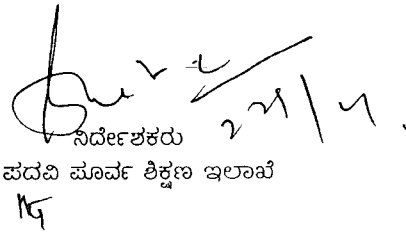 ನಿರ್ದೇಶಕರು
ಪದವಿ ಪೂರ್ವ ಶಿಕ್ಷಣ ಇಲಾಖೆ